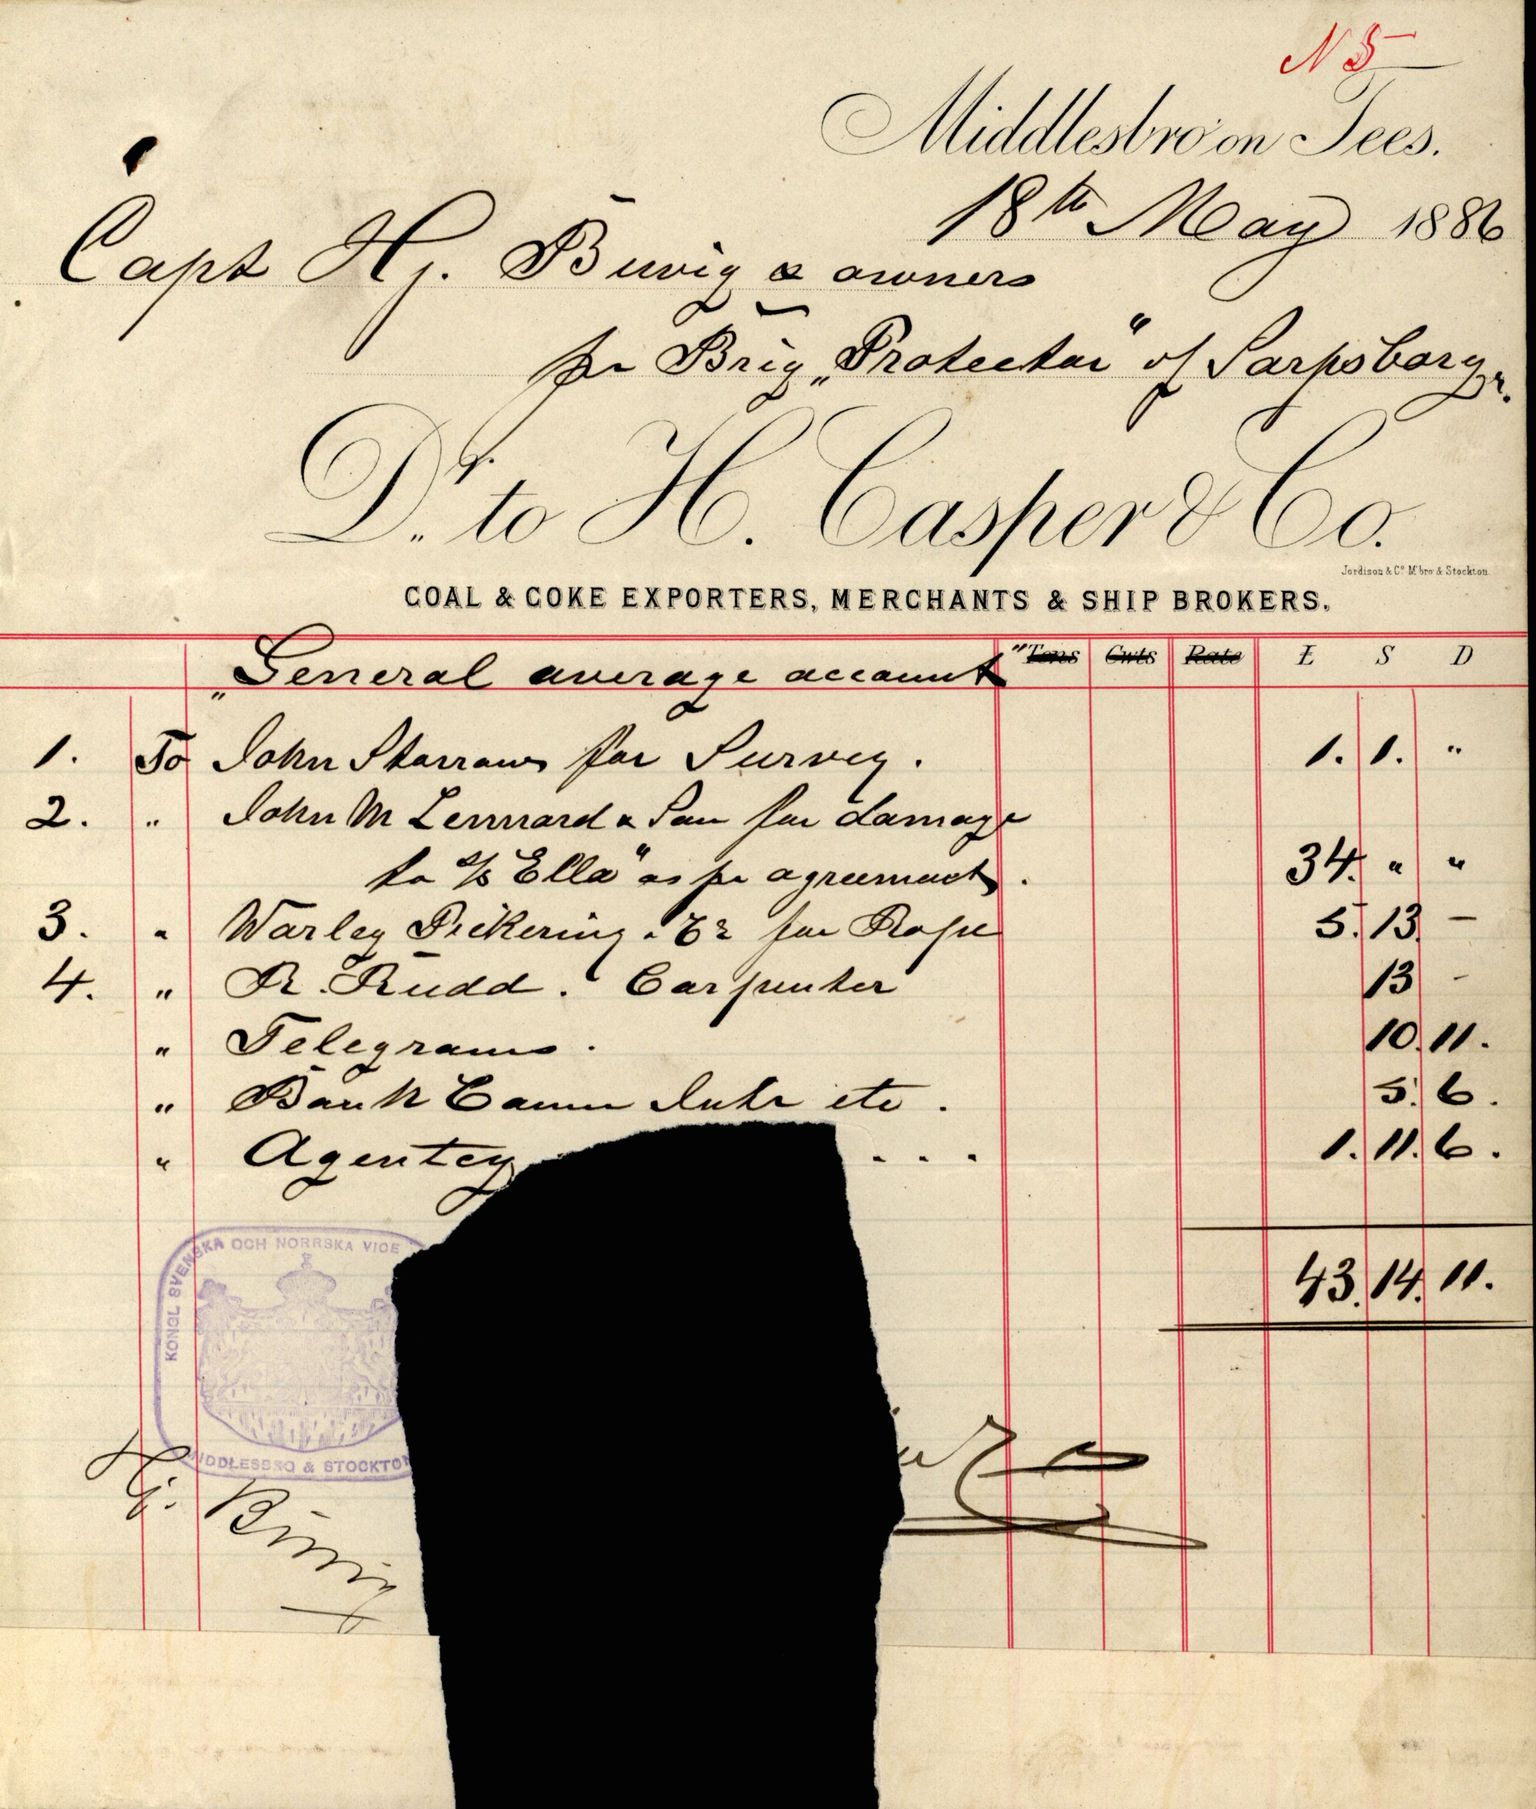 N 5
Middlesbro' on Tees.
18th May 1886
Capt Hj. Buvig & owners
pr Brig „Protector" of Sarpsborg.
Dr. to H. Casper & Co.
Jordison & Co M'bro & Stockton.
COAL & COKE EXPORTERS, MERCHANTS & SHIP BROKERS.
„General average account" Tons Cwts Rate £ S D
1. To John Storrow for Survey. 1. 1. "
2. " John M Lennard & Son for damage
to s/s "Ella" as pr agreement. 34. " "
3. " Warley Pickering & Co for Rope 5. 13. -
4. " R. Rudd. Carpenter 13 -
" Telegrams. 10. 11.
" Bank Comm Intr etc. 5. 6.
" Agentcy . . . 1. 11. 6.
43. 14. 11.
KONGL SVENSKA OCH NORRSKA VICE
MIDDLESBRO & STOCKTON
Hj. Buvig